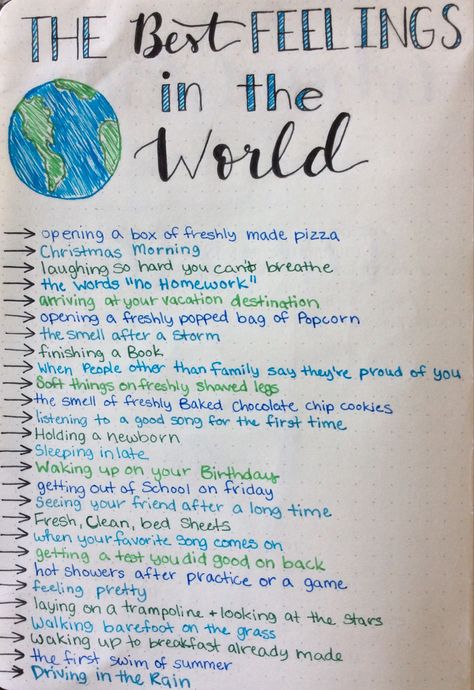 THE Best FEELINGS
in the
World
opening a box of freshly made pizza
Christmas Morning
laughing so hard you can't breathe
the words "no Homework"
arriving at your vacation destination
opening a freshly popped bag of Popcorn
the smell after a storm
finishing a Book
when People other than family say they're proud of you
Soft things on freshly shaved legs
the smell of freshly Baked Chocolate chip cookies
listening to a good song for the first time
Holding a newborn
Sleeping in late
Waking up on your Birthday
getting out of School on friday
Seeing your friend after a long time
Fresh, Clean, bed Sheets
when your favorite Song comes on
getting a test you did good on back
hot showers after practice or a game
feeling pretty
laying on a trampoline + looking at the stars
Walking barefoot on the grass
waking up to breakfast already made
the first swim of summer
Driving in the Rain